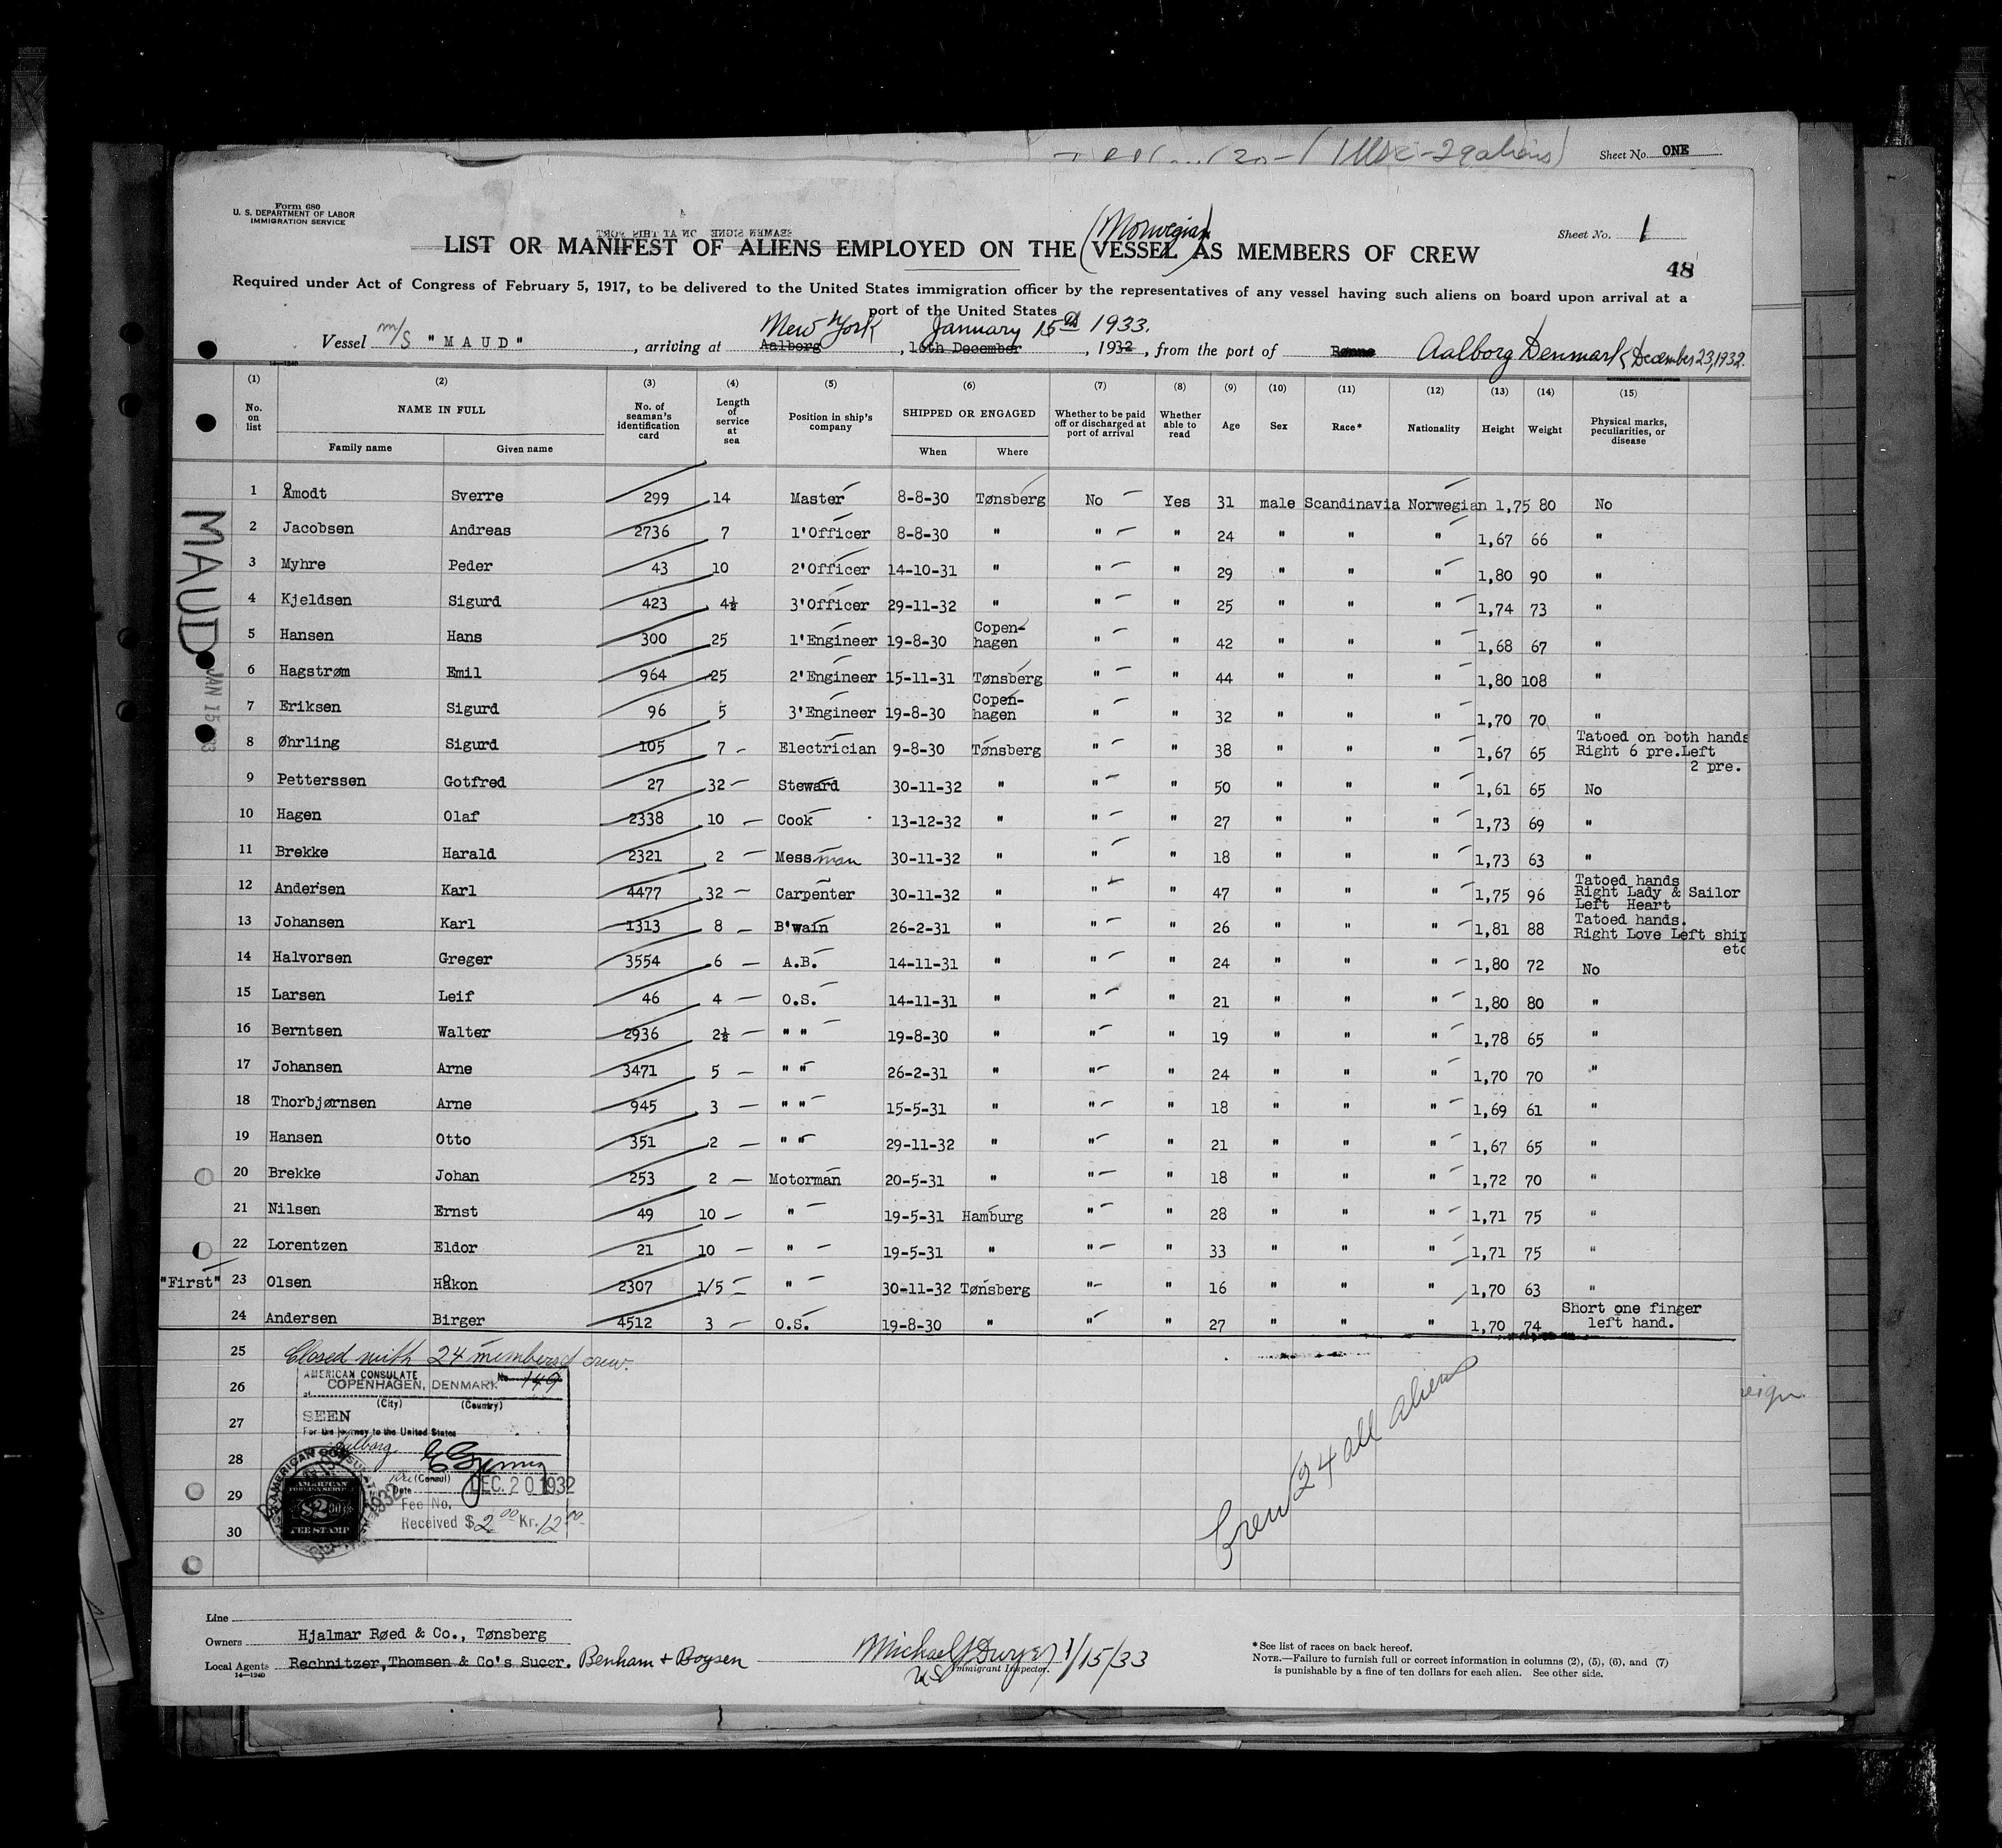 (20-1 USC-29 aliens)
Sheet No. ONE
Form 680
U. S. DEPARTMENT OF LABOR
IMMIGRATION SERVICE
SEAMEN SIGNE ON AT THIS PORT
(Norwegian)
Sheet No. 1
LIST OR MANIFEST OF ALIENS EMPLOYED ON THE VESSEL AS MEMBERS OF CREW
48
Required under Act of Congress of February 5, 1917, to be delivered to the United States immigration officer by the representatives of any vessel having such aliens on board upon arrival at a
port of the United States
New York January 15th 1933.
Vessel m/s "MAUD", arriving at Aalborg, 16th December, 1932, from the port of Rønne Aalborg Denmark, December 23, 1932.
(1) (2) (3) (4) (5) (6) (7) (8) (9) (10) (11) (12) (13) (14) (15)
No. on list NAME IN FULL No. of seaman's identification card Length of service at sea Position in ship's company SHIPPED OR ENGAGED Whether to be paid off or discharged at port of arrival Whether able to read Age Sex Race* Nationality Height Weight Physical marks, peculiarities, or disease
Family name Given name When Where
1 Åmodt Sverre 299 14 Master 8-8-30 Tønsberg No Yes 31 male Scandinavia Norwegian 1,75 80 No
2 Jacobsen Andreas 2736 7 1'Officer 8-8-30 " " " 24 " " " 1,67 66 "
3 Myhre Peder 43 10 2'Officer 14-10-31 " " " 29 " " " 1,80 90 "
4 Kjeldsen Sigurd 423 4½ 3'Officer 29-11-32 " " " 25 " " " 1,74 73 "
5 Hansen Hans 300 25 1'Engineer 19-8-30 Copenhagen " " 42 " " " 1,68 67 "
6 Hagstrøm Emil 964 25 2'Engineer 15-11-31 Tønsberg " " 44 " " " 1,80 108 "
7 Eriksen Sigurd 96 5 3'Engineer 19-8-30 Copenhagen " " 32 " " " 1,70 70 "
8 Øhrling Sigurd 105 7 Electrician 9-8-30 Tønsberg " " 38 " " " 1,67 65 Tatoed on both hands Right 6 pre.Left 2 pre.
9 Petterssen Gotfred 27 32 Steward 30-11-32 " " " 50 " " " 1,61 65 No
10 Hagen Olaf 2338 10 Cook 13-12-32 " " " 27 " " " 1,73 69 "
11 Brekke Harald 2321 2 Messman 30-11-32 " " " 18 " " " 1,73 63 "
12 Andersen Karl 4477 32 Carpenter 30-11-32 " " " 47 " " " 1,75 96 Tatoed hands Right Lady & Sailor Left Heart
13 Johansen Karl 1313 8 B'wain 26-2-31 " " " 26 " " " 1,81 88 Tatoed hands. Right Love Left ship etc
14 Halvorsen Greger 3554 6 A.B. 14-11-31 " " " 24 " " " 1,80 72 No
15 Larsen Leif 46 4 O.S. 14-11-31 " " " 21 " " " 1,80 80 "
16 Berntsen Walter 2936 2½ " " 19-8-30 " " " 19 " " " 1,78 65 "
17 Johansen Arne 3471 5 " " 26-2-31 " " " 24 " " " 1,70 70 "
18 Thorbjørnsen Arne 945 3 " " 15-5-31 " " " 18 " " " 1,69 61 "
19 Hansen Otto 351 2 " " 29-11-32 " " " 21 " " " 1,67 65 "
20 Brekke Johan 253 2 Motorman 20-5-31 " " " 18 " " " 1,72 70 "
21 Nilsen Ernst 49 10 " 19-5-31 Hamburg " " 28 " " " 1,71 75 "
22 Lorentzen Eldor 21 10 " 19-5-31 " " " 33 " " " 1,71 75 "
"First" 23 Olsen Håkon 2307 1/5 " 30-11-32 Tønsberg " " 16 " " " 1,70 63 "
24 Andersen Birger 4512 3 O.S. 19-8-30 " " " 27 " " " 1,70 74 Short one finger left hand.
25 Closed with 24 members of crew.
26
27
28
29
30
MAUD
JAN 15
AMERICAN CONSULATE
No. 149
at COPENHAGEN, DENMARK
(City) (Country)
SEEN
For the journey to the United States
Aalborg
(Consul)
Date DEC. 20 1932
Fee No.
Received $2.00 Kr. 12.00
AMERICAN
FOREIGN SERVICE
$2.00
FEE STAMP
Crew 24 all aliens
eign
Line
Owners Hjalmar Røed & Co., Tønsberg
Local Agents Rechnitzer, Thomsen & Co's Succr. Benham + Boysen
14—1240
Michael J Dwyer 1/15/33
U.S. Immigrant Inspector.
*See list of races on back hereof.
NOTE.—Failure to furnish full or correct information in columns (2), (5), (6), and (7)
is punishable by a fine of ten dollars for each alien. See other side.